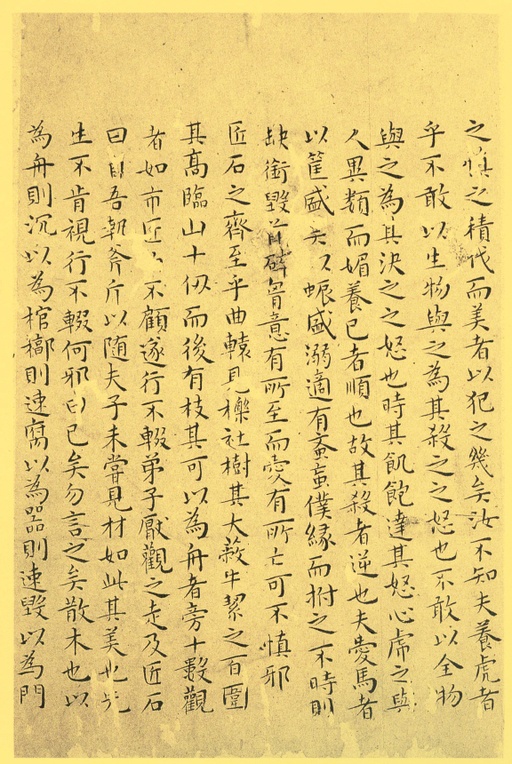 之慎之積伐而美者以犯之幾矣汝不知夫養虎者
乎不敢以生物與之為其殺之之怒也不敢以全物
與之為其決之之怒也時其飢飽達其怒心虎之與
人異類而媚養己者順也故其殺者逆也夫愛馬者
以筐盛矢以蜄盛溺適有蚉蝱僕緣而拊之不時則
缺銜毀首碎胷意有所至而愛有所亡可不慎邪
匠石之齊至乎曲轅見櫟社樹其大蔽牛絜之百圍
其高臨山十仞而後有枝其可以為舟者旁十數觀
者如市匠不顧遂行不輟弟子厭觀之走及匠石
曰自吾執斧斤以隨夫子未嘗見材如此其美也先
生不肯視行不輟何邪曰已矣勿言之矣散木也以
為舟則沉以為棺槨則速腐以為器則速毀以為門